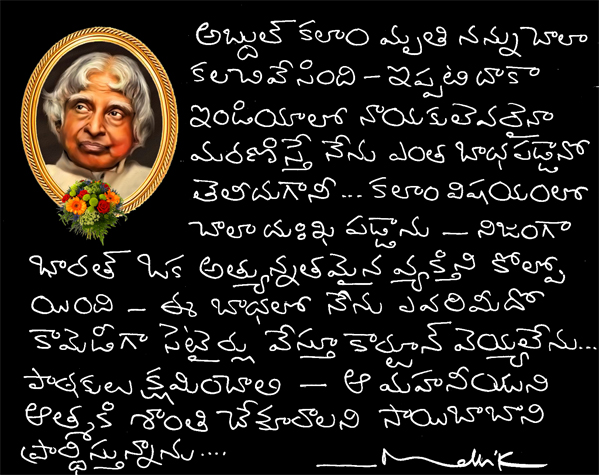 అబ్దుల్ కలాం మృతి నన్ను చాలా
కలచివేసింది - ఇప్పటి దాకా
ఇండియాలో నాయకులెవరైనా
మరణిస్తే నేను ఎంత బాధపడ్డానో
తెలీదుగానీ... కలాం విషయంలో
చాలా దుఃఖ పడ్డాను - నిజంగా
భారత్ ఒక అత్యున్నతమైన వ్యక్తిని కోల్పో
యింది - ఈ బాధలో నేను ఎవరిమీదో
కామెడీగా సెటైర్లు వేస్తూ కార్టూన్ వెయ్యలేను...
పాఠకులు క్షమించాలి - ఆ మహనీయుని
ఆత్మకి శాంతి చేకూరాలని సాయిబాబాని
ప్రార్థిస్తున్నాను....